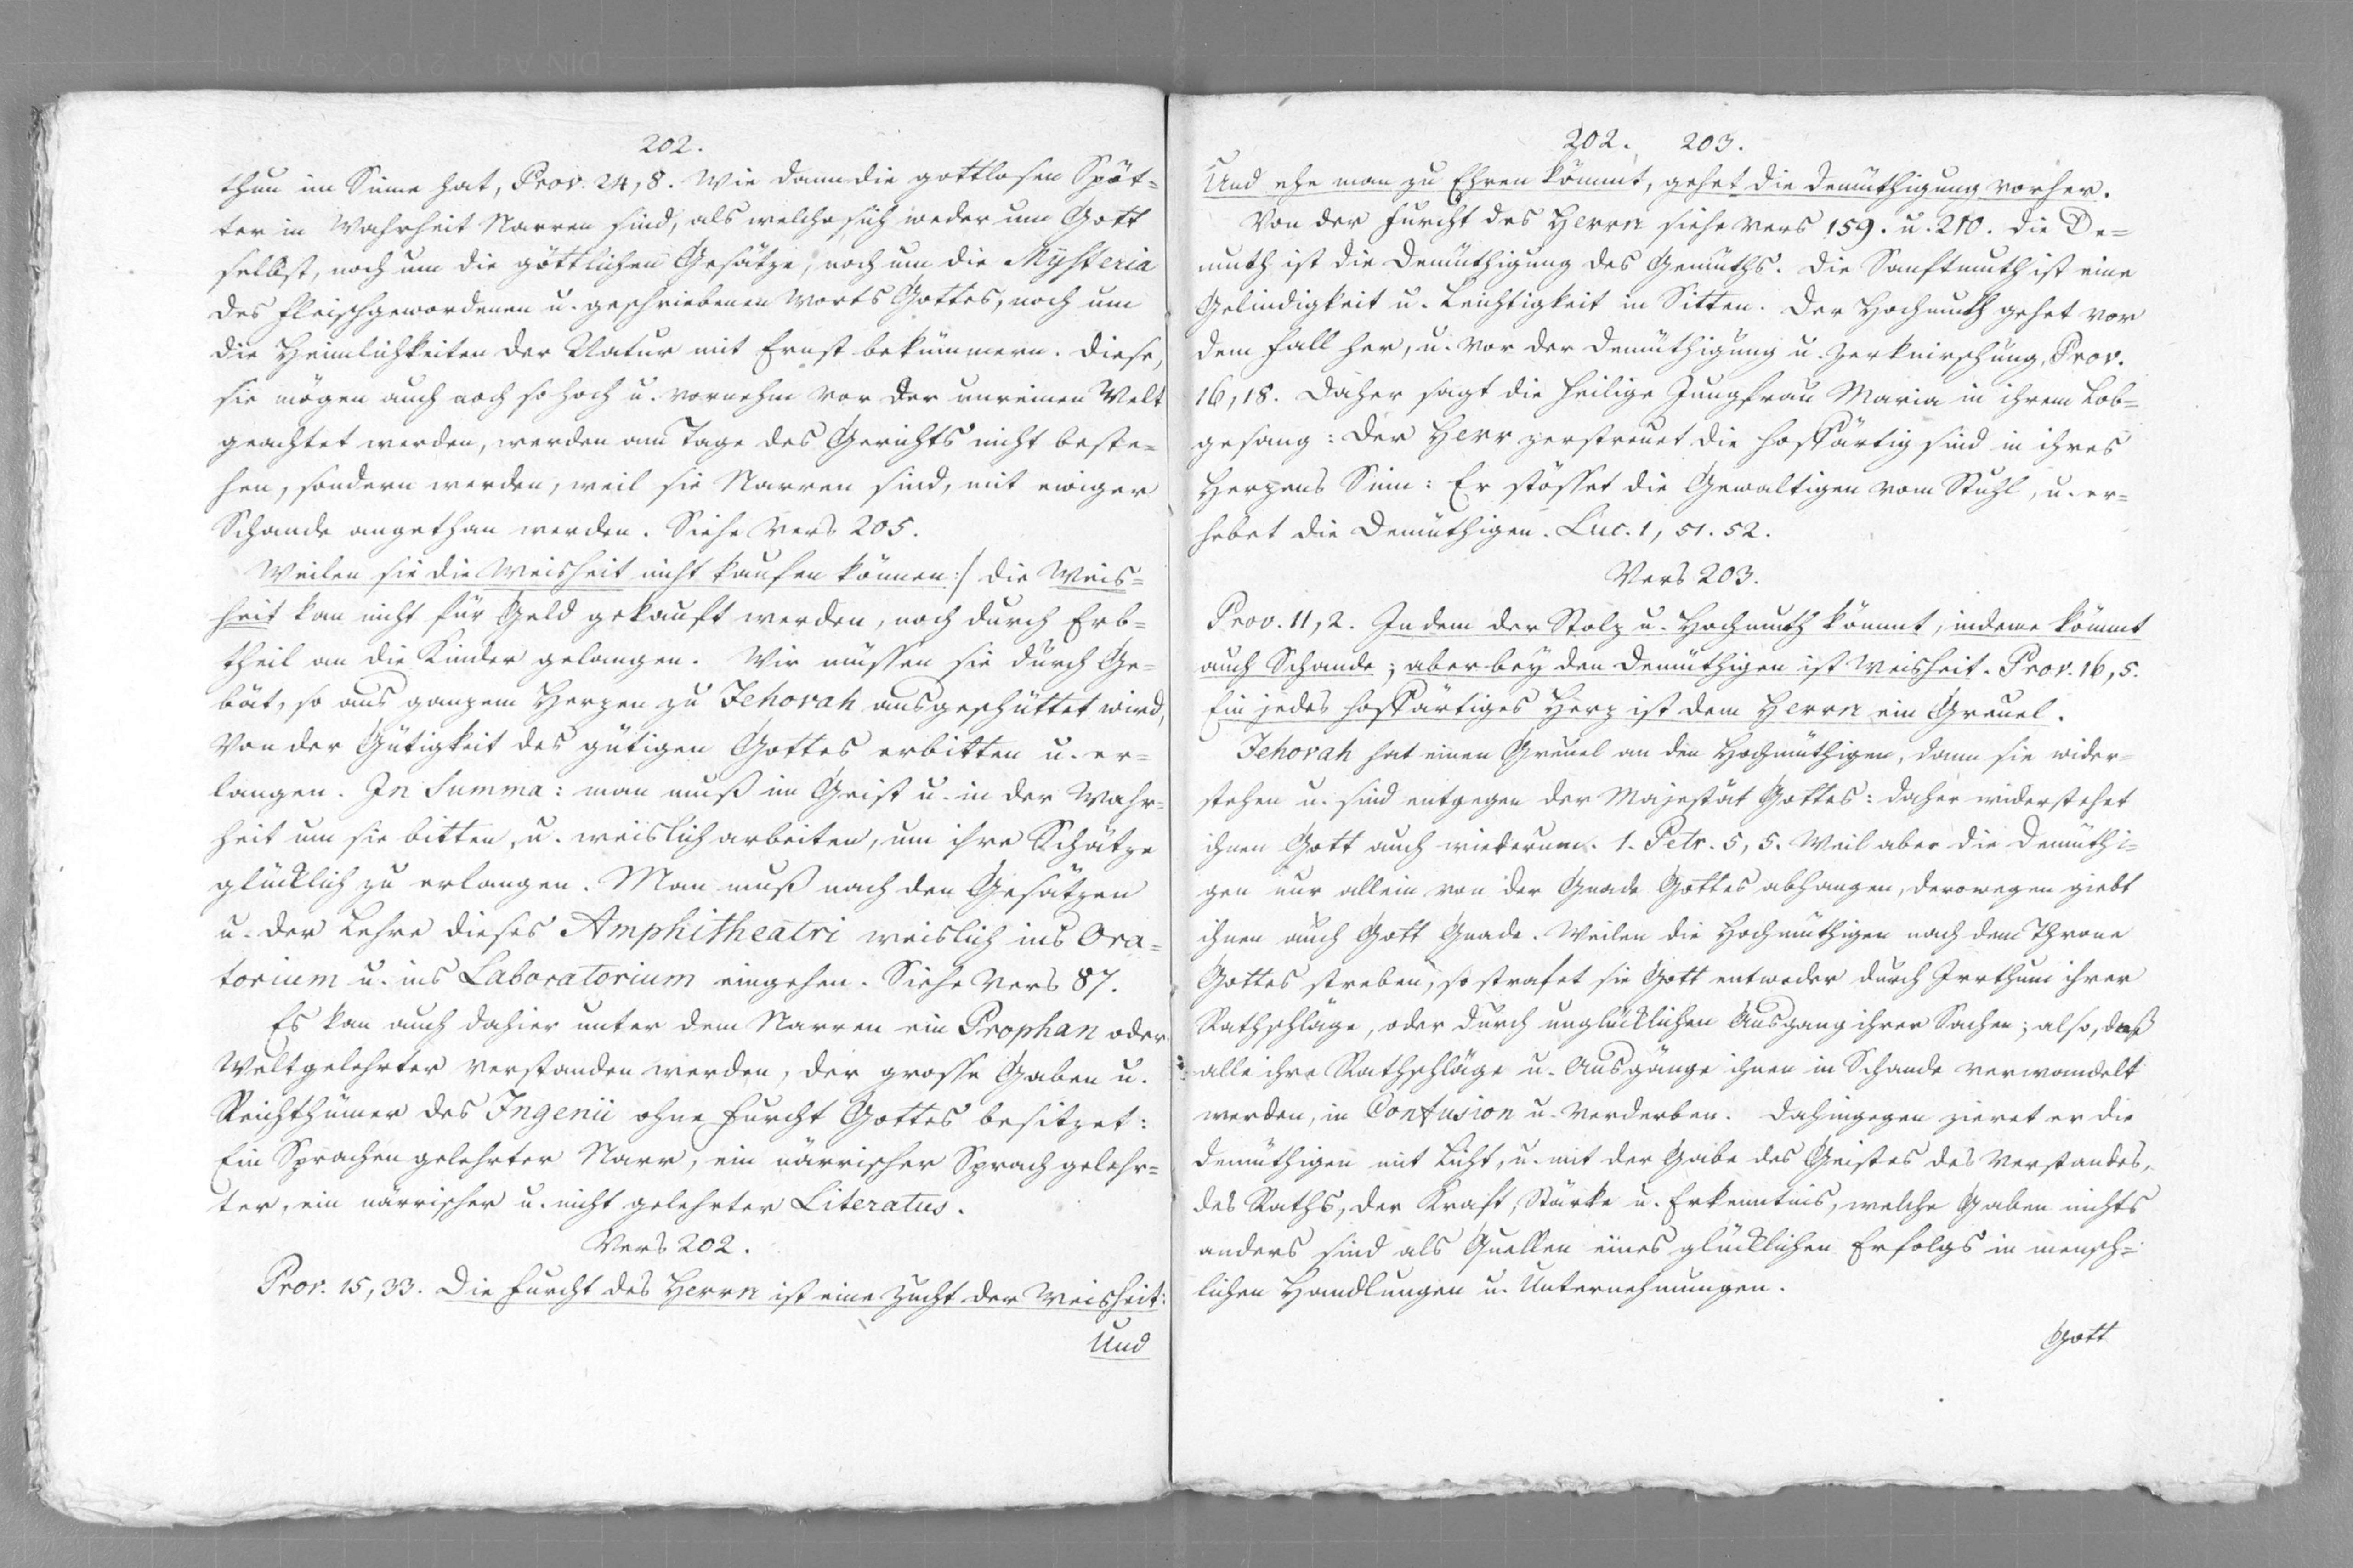 202.
thun im Sinne hat, Prov. 24, 8. Wie dann die gottlosen Spöt=
ter in Wahrheit Narren sind, als welche sich weder um Gott
selbst, noch um die göttlichen Gesätze, noch um die Mysteria
des fleischgewordenen u. geschriebenen Worts Gottes, noch um
die Heimlichkeiten der Natur mit Ernst bekümmern. Diese,
sie mögen auch noch so hoch u. vornehm vor der unreinen Welt
geachtet werden, werden am Tage des Gerichts nicht beste=
hen, sondern werden, weil sie Narren sind, mit ewiger
Schande angethan werden. Siehe Vers 205.
Weilen sie die Weisheit nicht kaufen können:/ die Weis=
heit kan nicht für Geld gekauft werden, noch durch Erb=
theil an die Kinder gelangen. Wir müssen sie durch Ge=
bät, so aus ganzem Herzen zu Jehovah ausgeschüttet wird,
von der Gütigkeit des gütigen Gottes erbitten u. er=
langen. In Summa: man muß im Geist u. in der Wahr=
heit um sie bitten, u. weislich arbeiten, um ihre Schätze
glücklich zu erlangen. Man muß nach den Gesätzen
u. der Lehre dieses Amphitheatri weislich ins Ora=
torium u. ins Laboratorium eingehen. Siehe Vers 87.
Es kan auch dahier unter dem Narren ein Prophan oder
Weltgelehrter verstanden werden, der grosse Gaben u.
Reichthümer des Ingenii ohne Furcht Gottes besitzet:
Ein Sprachen gelehrter Narr, ein närrischer Sprachgelehr=
ter, ein närrischer u. nicht gelehrter Literatus.
Vers 202.
Prov. 15, 33. Die Furcht des Herrn ist eine Zucht der Weisheit:
Und
202. 203.
Und ehe man zu Ehren kömmt, gehet die Demüthigung vorher.
Von der Furcht des Herrn siehe Vers 159. u. 210. Die De=
muth ist die Demüthigung des Gemüths. Die Sanftmuth ist eine
Gelindigkeit u. Leichtigkeit in Sitten. Der Hochmuth gehet vor
dem Fall her, u. vor der Demüthigung u. Zerknirschung, Prov.
16, 18. Daher sagt die heilige Jungfrau Maria in ihrem Lob=
gesang: Der Herr zerstreuet die hoffärtig sind in ihres
Herzens Sinn: Er stösset die Gewaltigen vom Stuhl, u. er=
hebet die Demüthigen. Luc. 1, 51. 52.
Vers 203.
Prov. 11, 2. Indem der Stolz u. Hochmuth kömmt, indeme kömmt
auch Schande; aber bey den Demüthigen ist Weisheit. Prov. 16, 5.
Ein jedes hoffärtiges Herz ist dem Herrn ein Greuel.
Jehovah hat einen Greuel an den Hochmüthigen, dann sie wider=
stehen u. sind entgegen der Majestät Gottes: daher widerstehet
ihnen Gott auch wiederum. 1. Petr. 5, 5. Weil aber die Demüthi=
gen nur allein von der Gnade Gottes abhangen, derowegen giebt
ihnen auch Gott Gnade. Weilen die Hochmüthigen nach dem Throne
Gottes streben, so strafet sie Gott entweder durch Irrthum ihrer
Rathschläge, oder durch unglücklichen Ausgang ihrer Sachen; also, daß
alle ihre Rathschläge u. Ausgänge ihnen in Schande verwandelt
werden, in Confusion u. Verderben. Dahingegen zieret er die
Demüthigen mit Licht, u. mit der Gabe des Geistes des Verstandes,
des Raths, der Kraft, Stärke u. Erkenntnis, welche Gaben nichts
anders sind als Quellen eines glücklichen Erfolgs in mensch=
lichen Handlungen u. Unternehmungen.
Gott